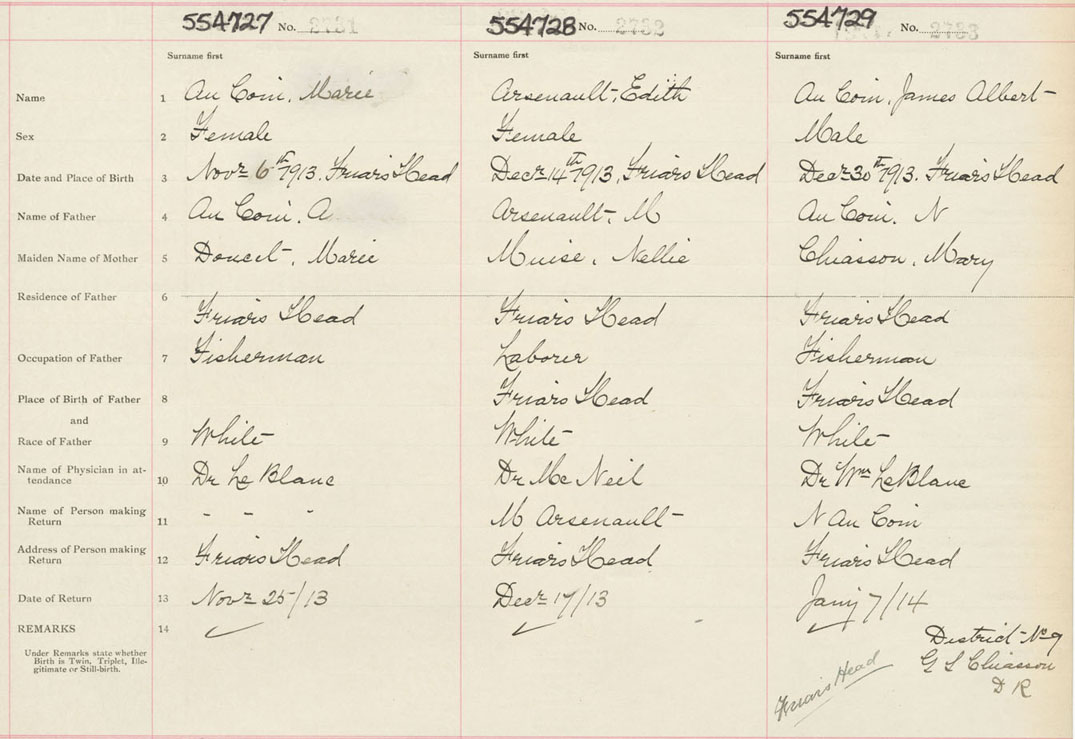 554727 No. 2731 554728 No. 2732 554729 No. 2733
Surname first Surname first Surname first
Name 1 Au Coin, Marie Arsenault, Edith Au Coin, James Albert
Sex 2 Female Female Male
Date and Place of Birth 3 Novr 6th 1913. Friars Head Decr 14th 1913, Friars Head Decr 30th 1913. Friars Head
Name of Father 4 Au Coin, A Arsenault, M Au Coin, N
Maiden Name of Mother 5 Doucet, Marie Muise, Nellie Chiasson, Mary
Residence of Father 6
Friars Head Friars Head Friars Head
Occupation of Father 7 Fisherman Laborer Fisherman
Place of Birth of Father 8 Friars Head Friars Head
and
Race of Father 9 White White White
Name of Physician in at-
tendance 10 Dr Le Blanc Dr Mc Neil Dr Wm LeBlanc
Name of Person making
Return 11 - - - M Arsenault N Au Coin
Address of Person making
Return 12 Friars Head Friars Head Friars Head
Date of Return 13 Novr 25/13 Decr 17/13 Jany 7/14
REMARKS 14
Under Remarks state whether
Birth is Twin, Triplet, Ille-
gitimate or Still-birth.
District No 9
G L Chiasson
D R
Friars Head